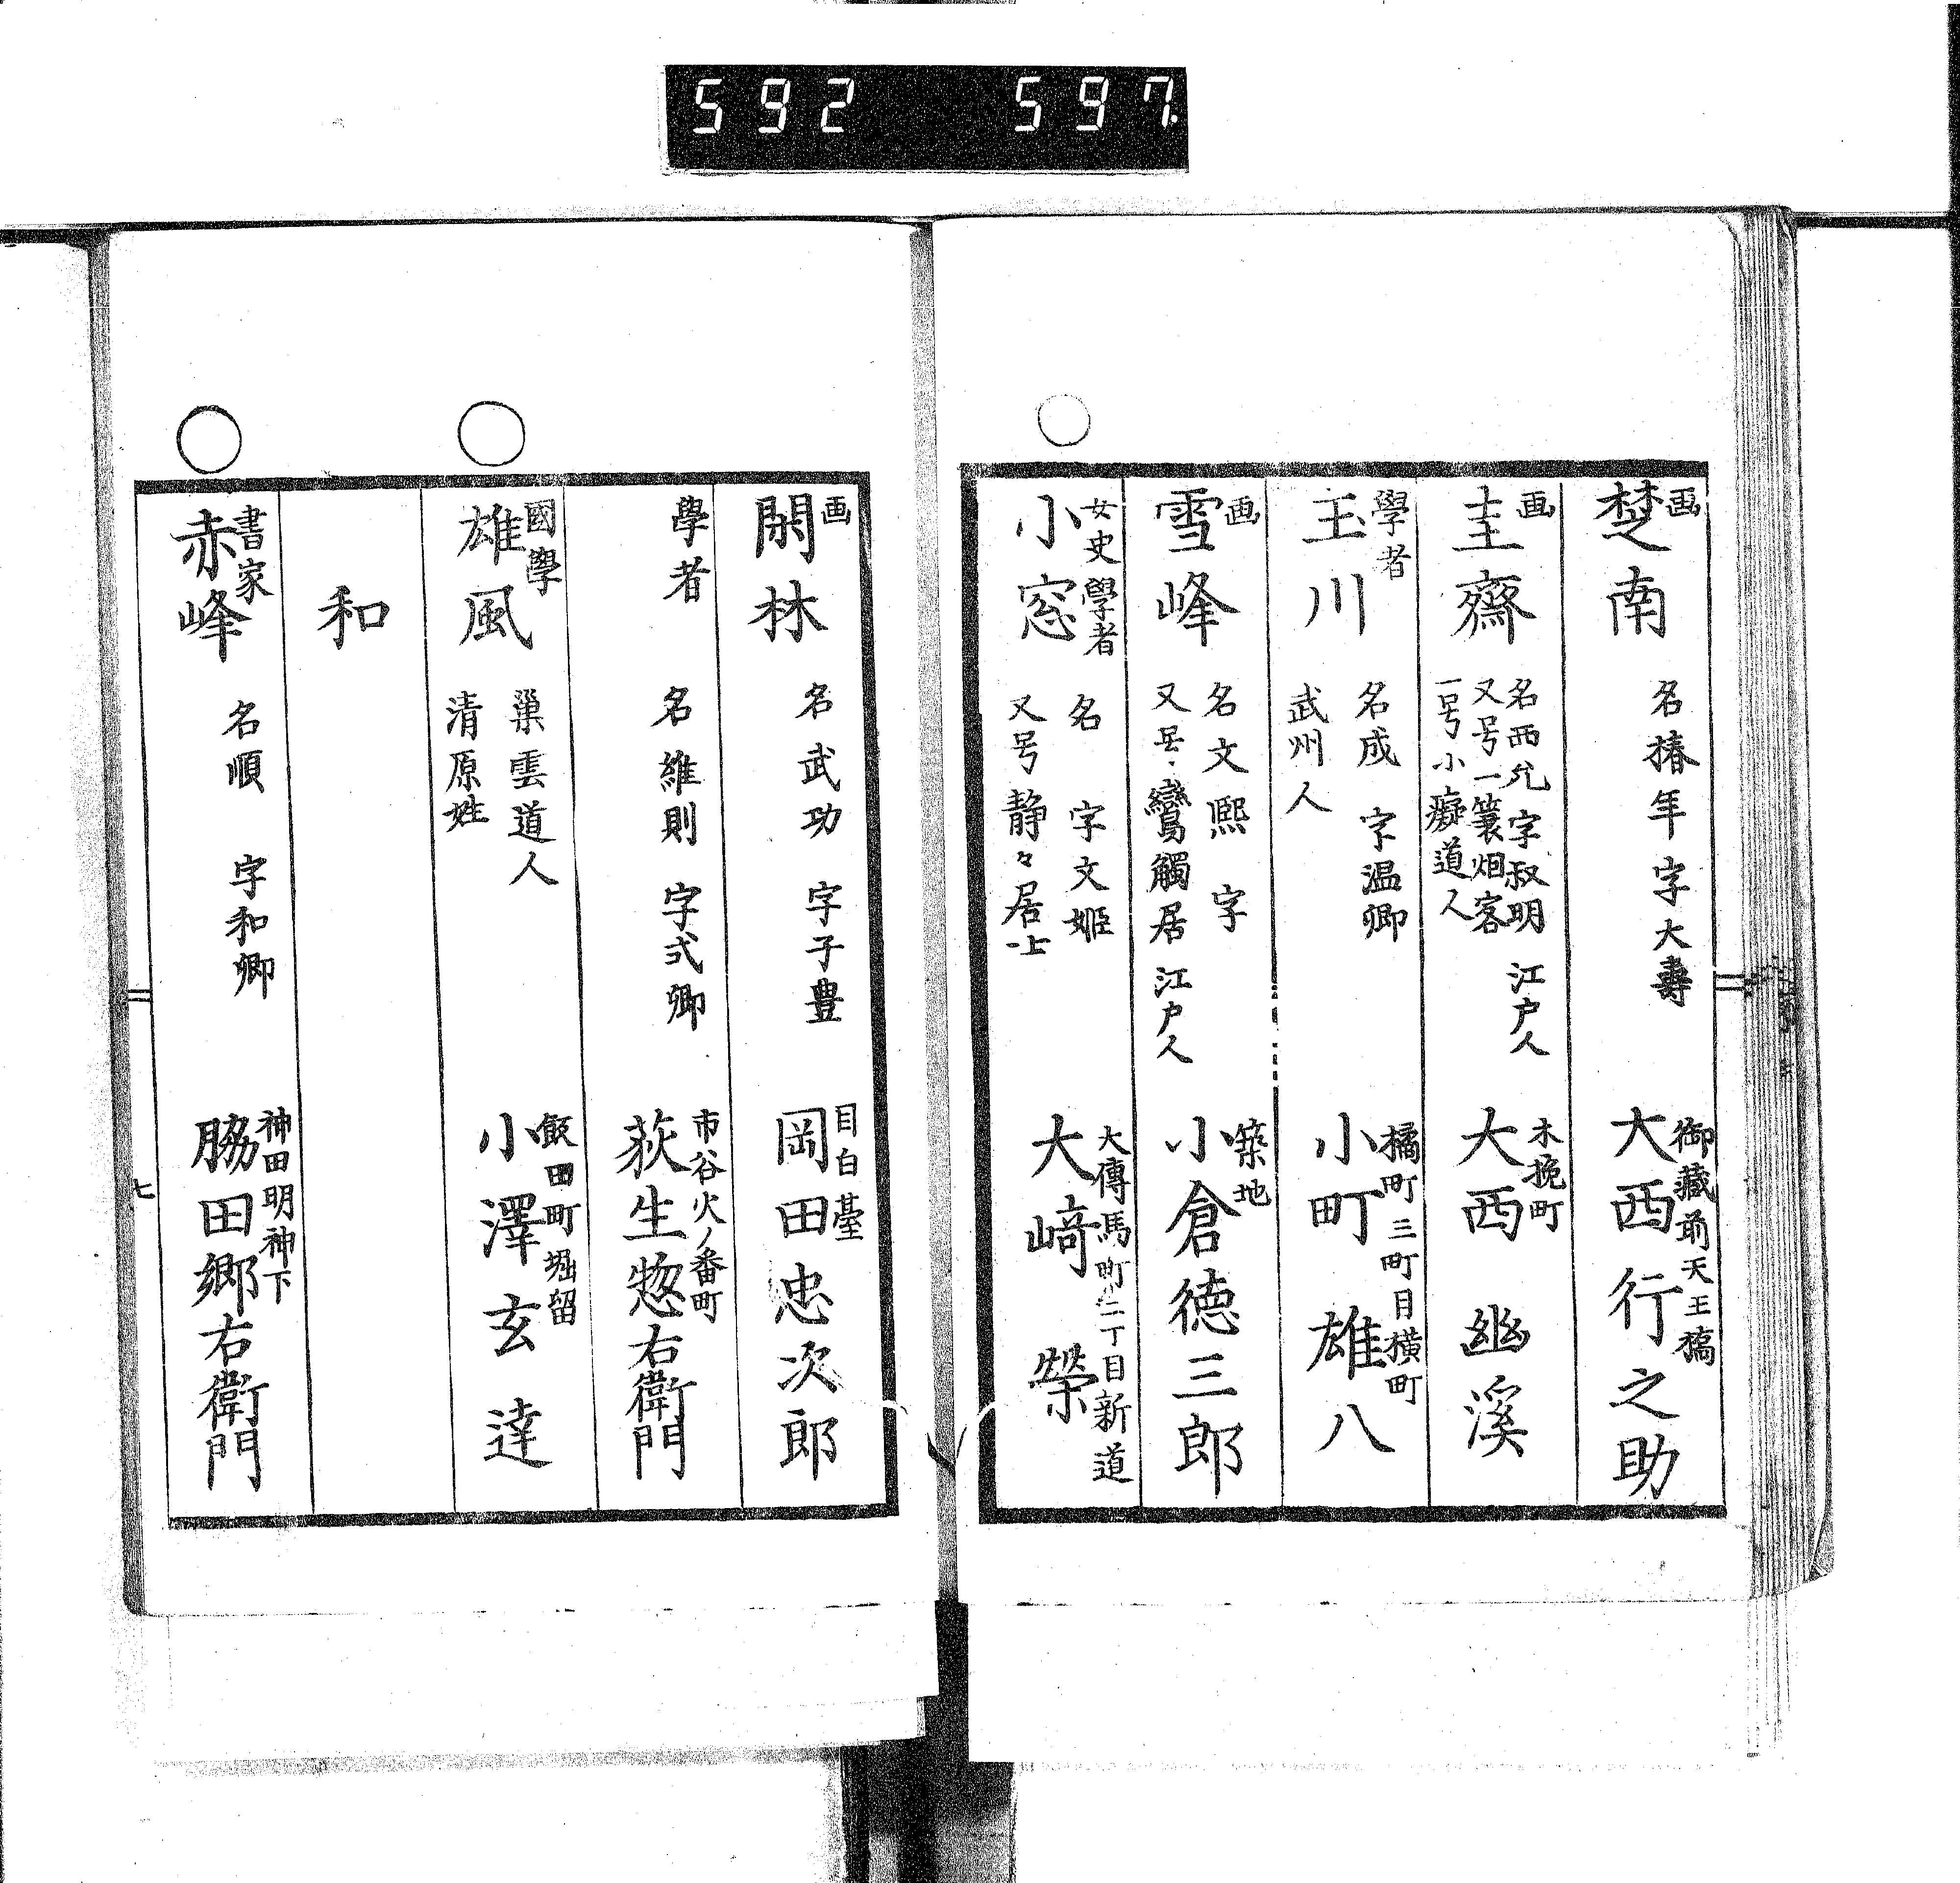 592 597
画
楚南
名椿年字大壽
御藏前天王橋
大西行之助
画
圭齋
名西允字叔明
又号一簑烟客
一号小癡道人
江戸人
木挽町
大西幽溪
學者
玉川
名成 字温卿
武州人
橘町三町目横町
小町雄八
画
雪峰
名文熙 字
又号鸞觸居 江戸人
築地
小倉德三郎
女史學者
小窓
名 字文姫
又号静々居士
大傳馬町二丁目新道
大﨑榮
画
閑林
名武功 字子豊
目白臺
岡田忠次郎
學者
名維則 字式卿
市谷火ノ番町
荻生惣右衛門
國學
雄風
巢雲道人
清原姓
飯田町堀留
小澤玄達
和
書家
赤峰
名順 字和卿
神田明神下
脇田郷右衛門
七